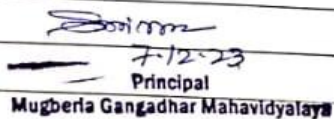 7.12.23
Principal
Mugberia Gangadhar Mahavidyalaya